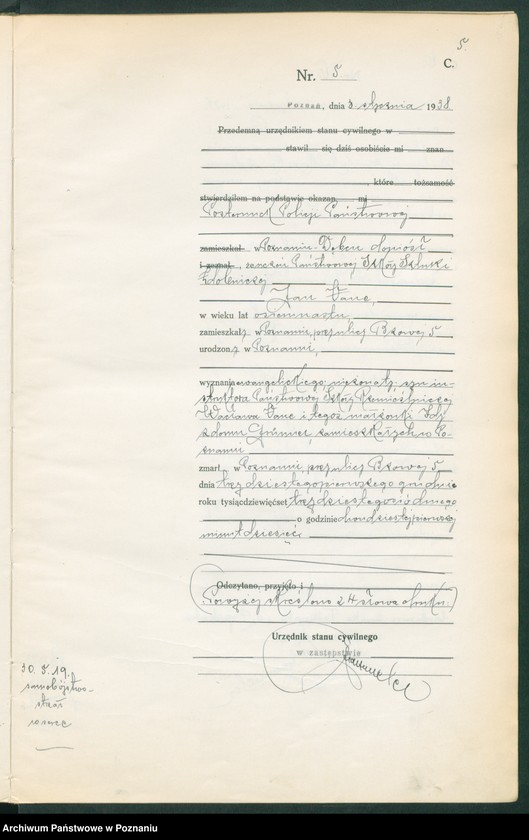 5.
C.
Nr. 5
Poznań, dnia 3 stycznia 1938
Przedemną urzędnikiem stanu cywilnego w
stawił się dziś osobiście mi znan
, które tożsamość
stwierdziłem na podstawie okazan, mi
Posterunek Policji Państwowej
zamieszkał w Poznaniu-Dębcu doniósł
i zeznał, że uczeń Państwowej Szkoły Sztuki
Zdobniczej
Jan
w wieku lat osiemnastu,
zamieszkały w Poznaniu, przy ulicy Bzowej 5
urodzony w Poznaniu,
wyznania ewangelickiego, nieżonaty, syn in-
struktora Państwowej Szkoły Rzemieślniczej
Wacława i tegoż małżonki
z domu zamieszkałych w Po-
znaniu
zmarł w Poznaniu, przy ulicy Bzowej 5
dnia trzydziestego pierwszego grudnia
roku tysiącdziewięćset trzydziestego siódmego
o godzinie dwudziestej pierwszej
minut dziesięć.
Odczytano, przyjęto i
Powyżej skreślono 24 słowa druku.
Urzędnik stanu cywilnego
w zastępstwie
30. 5. 19.
samobójstwo-
strzał
w serce
Archiwum Państwowe w Poznaniu